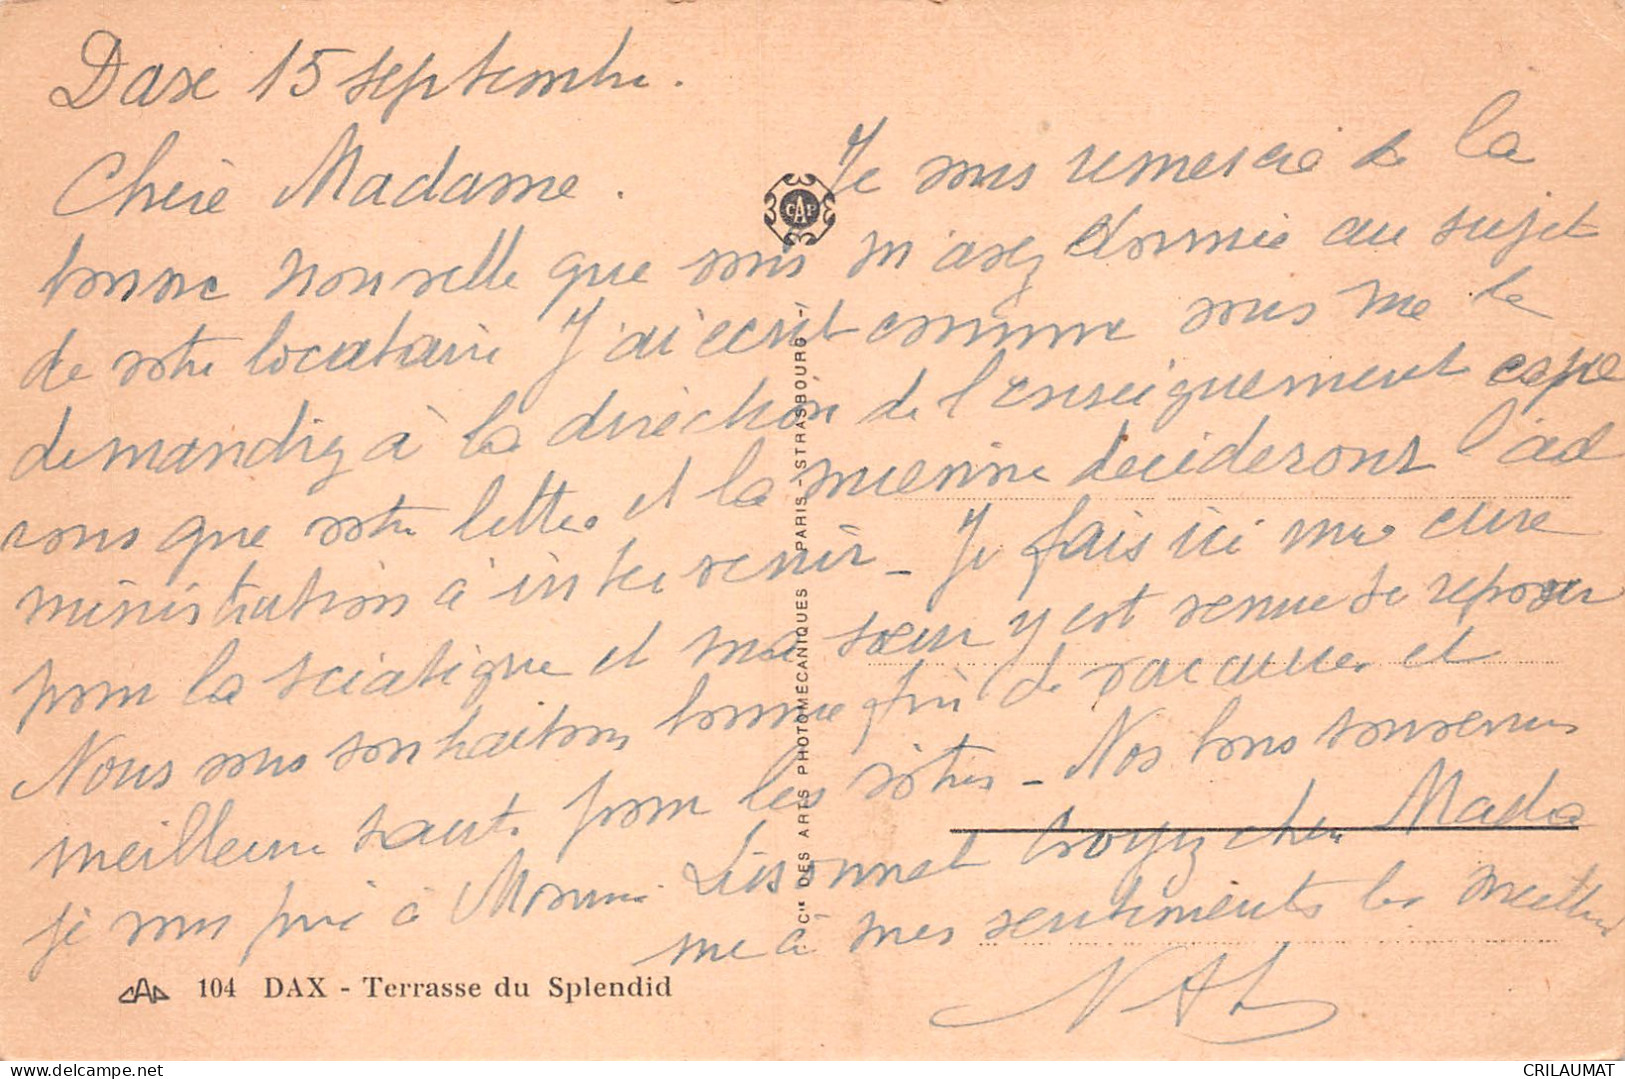 Dax 15 septembre.
Chère Madame. Je vous remercie de la
bonne nouvelle que vous m'avez donnée au sujet
de votre locataire J'ai écrit comme vous me le
demandiez à la direction de l'enseignement espé
rons que votre lettre et la mienne décideront l'ad
ministration à intervenir - Je fais ici ma cure
pour la sciatique et ma sœur y est venue se reposer
Nous vous souhaitons bonne fin de vacances et
meilleure santé pour les vôtres - Nos bons souvenirs
je vous prie à croyez chère Mada
me à mes sentiments les meilleurs
CAP
Cie DES ARTS PHOTOMÉCANIQUES PARIS - STRASBOURG -
CAP 104 DAX - Terrasse du Splendid
CRILAUMAT